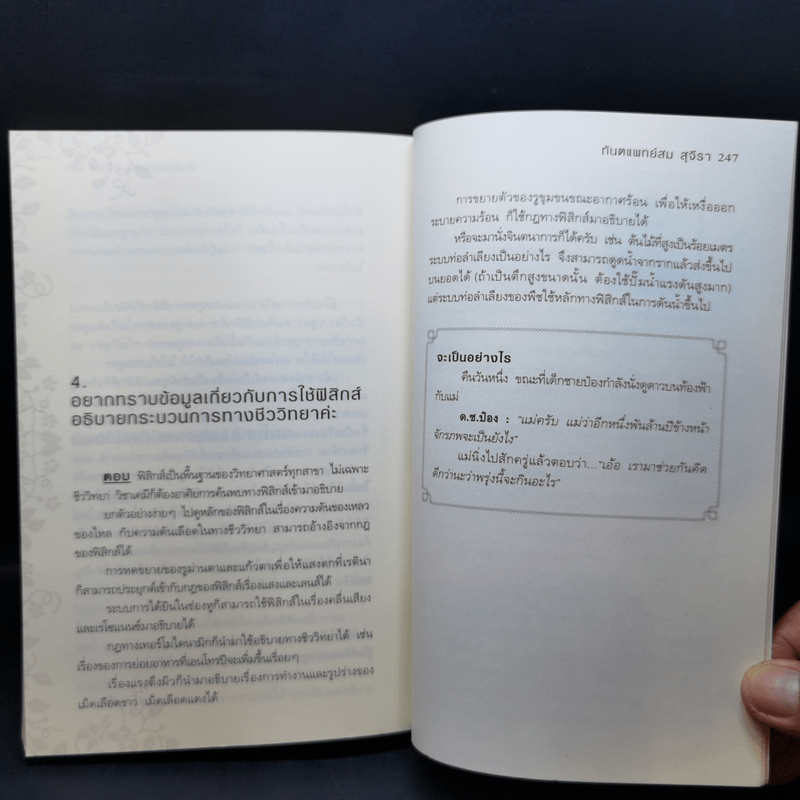 4.
อยากทราบข้อมูลเกี่ยวกับการใช้ฟิสิกส์
อธิบายกระบวนการทางชีววิทยาค่ะ
ตอบ ฟิสิกส์เป็นพื้นฐานของวิทยาศาสตร์ทุกสาขา ไม่เฉพาะ
ชีววิทยา วิชาเคมีก็ต้องอาศัยการค้นพบทางฟิสิกส์เข้ามาอธิบาย
ยกตัวอย่างง่ายๆ ไปดูหลักของฟิสิกส์ในเรื่องความดันของเหลว
ของไหล กับความดันเลือดในทางชีววิทยา สามารถอ้างอิงจากกฎ
ของฟิสิกส์ได้
การหดขยายของรูม่านตาและแก้วตาเพื่อให้แสงตกที่เรตินา
ก็สามารถประยุกต์เข้ากับกฎของฟิสิกส์เรื่องแสงและเลนส์ได้
ระบบการได้ยินในช่องหูก็สามารถใช้ฟิสิกส์ในเรื่องคลื่นเสียง
และเรโซแนนซ์มาอธิบายได้
กฎทางเทอร์โมไดนามิกก็นำมาใช้อธิบายทางชีววิทยาได้ เช่น
เรื่องของการย่อยอาหารที่เอนโทรปีจะเพิ่มขึ้นเรื่อยๆ
เรื่องแรงตึงผิวก็นำมาอธิบายเรื่องการทำงานและรูปร่างของ
เม็ดเลือดขาว เม็ดเลือดแดงได้
ทันตแพทย์สม สุจีรา 247
การขยายตัวของรูขุมขนขณะอากาศร้อน เพื่อให้เหงื่อออก
ระบายความร้อน ก็ใช้กฎทางฟิสิกส์มาอธิบายได้
หรือจะมานั่งจินตนาการก็ได้ครับ เช่น ต้นไม้ที่สูงเป็นร้อยเมตร
ระบบท่อลำเลียงเป็นอย่างไร จึงสามารถดูดน้ำจากรากแล้วส่งขึ้นไป
บนยอดได้ (ถ้าเป็นตึกสูงขนาดนั้น ต้องใช้ปั๊มน้ำแรงดันสูงมาก)
แต่ระบบท่อลำเลียงของพืชใช้หลักทางฟิสิกส์ในการดันน้ำขึ้นไป
จะเป็นอย่างไร
คืนวันหนึ่ง ขณะที่เด็กชายป๋องกำลังนั่งดูดาวบนท้องฟ้า
กับแม่
ด.ช.ป๋อง : "แม่ครับ แม่ว่าอีกหนึ่งพันล้านปีข้างหน้า
จักรภพจะเป็นยังไง"
แม่นิ่งไปสักครู่แล้วตอบว่า..."เอ้อ เรามาช่วยกันคิด
ดีกว่านะว่าพรุ่งนี้จะกินอะไร"